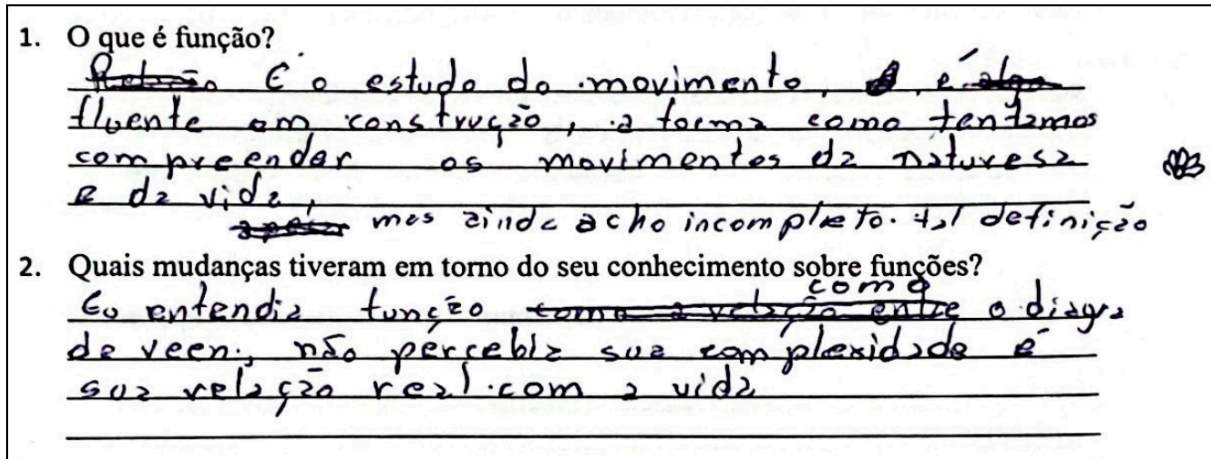 1. O que é função?
Relação É o estudo do movimento, é algo
fluente em construção, a forma como tentamos
compreender os movimentos da naturesa
e da vida,
mas ainda acho incompleto. tal definição
2. Quais mudanças tiveram em torno do seu conhecimento sobre funções?
como
Eu entendia função como a relação entre o diagra
de veen., não percebia sua complexidade e
sua relação real com a vida